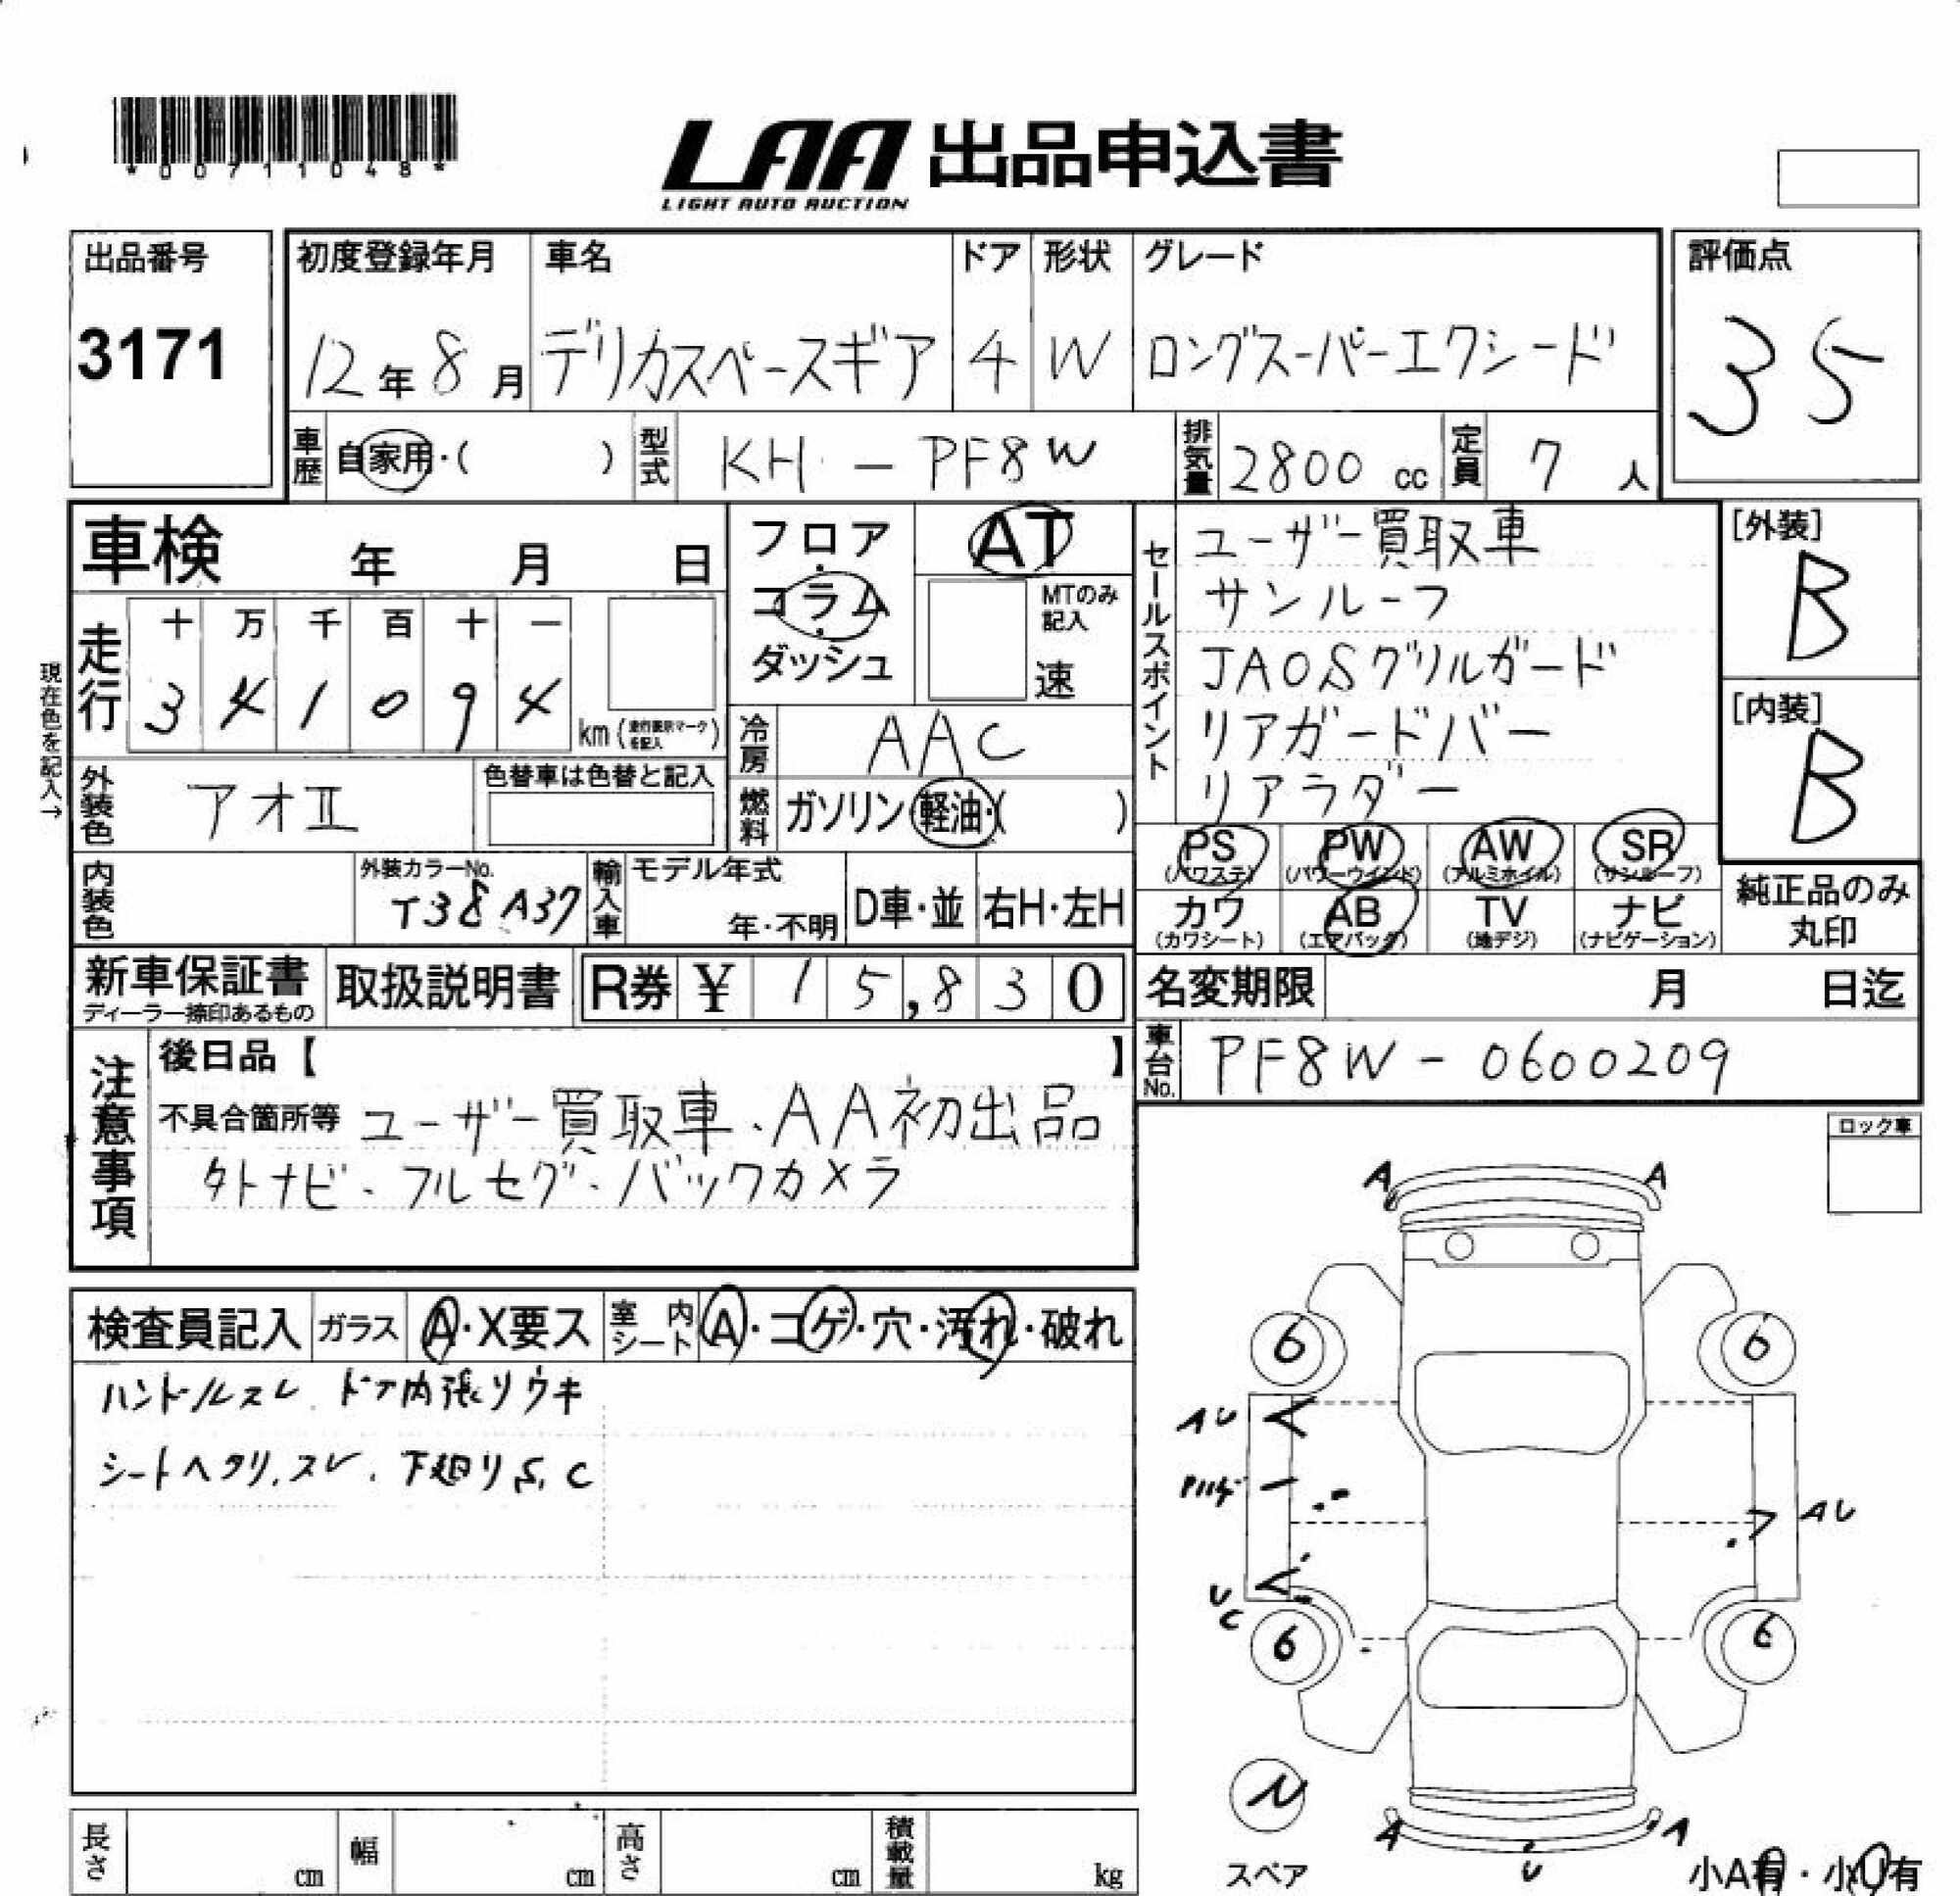 *00711048*
LAA 出品申込書
LIGHT AUTO AUCTION
出品番号
3171
初度登録年月
12年8月
車名
デリカスペースギア
ドア
4
形状
W
グレード
ロングスーパーエクシード
評価点
35
車歴 自家用・( )
型式 KH-PF8W
排気量 2800 cc
定員 7 人
車検 年 月 日
フロア・コラム・ダッシュ
AT
MTのみ記入
速
現在色を記入→
走行
十 万 千 百 十 一
3 4 1 0 9 4
km
冷房 AAC
外装色 アオⅡ
色替車は色替と記入
燃料 ガソリン・軽油・( )
セールスポイント
ユーザー買取車
サンルーフ
JAOSグリルガード
リアガードバー
リアラダー
[外装]
B
[内装]
B
PS (パワステ) PW (パワーウインド) AW (アルミホイル) SR (サンルーフ)
カワ (カワシート) AB (エアバッグ) TV (地デジ) ナビ (ナビゲーション)
純正品のみ丸印
内装色
外装カラーNo.
T38 A37
輸入車
モデル年式
年・不明
D車・並
右H・左H
新車保証書
ディーラー捺印あるもの
取扱説明書
R券 ¥ 15,830
名変期限 月 日迄
車台No. PF8W-0600209
注意事項
後日品【 】
不具合箇所等 ユーザー買取車、AA初出品
外ナビ、フルセグ、バックカメラ
ロック車
検査員記入 ガラス A・X要ス 室内シート A・コゲ・穴・汚れ・破れ
ハンドルスレ、ドア内張リウキ
シートヘタリ、スレ、下廻りS、C
A A
6 6
AU
AU
UC
6 6
N
スペア
A A
U
小A有・小U有
長さ cm 幅 cm 高さ cm 積載量 kg